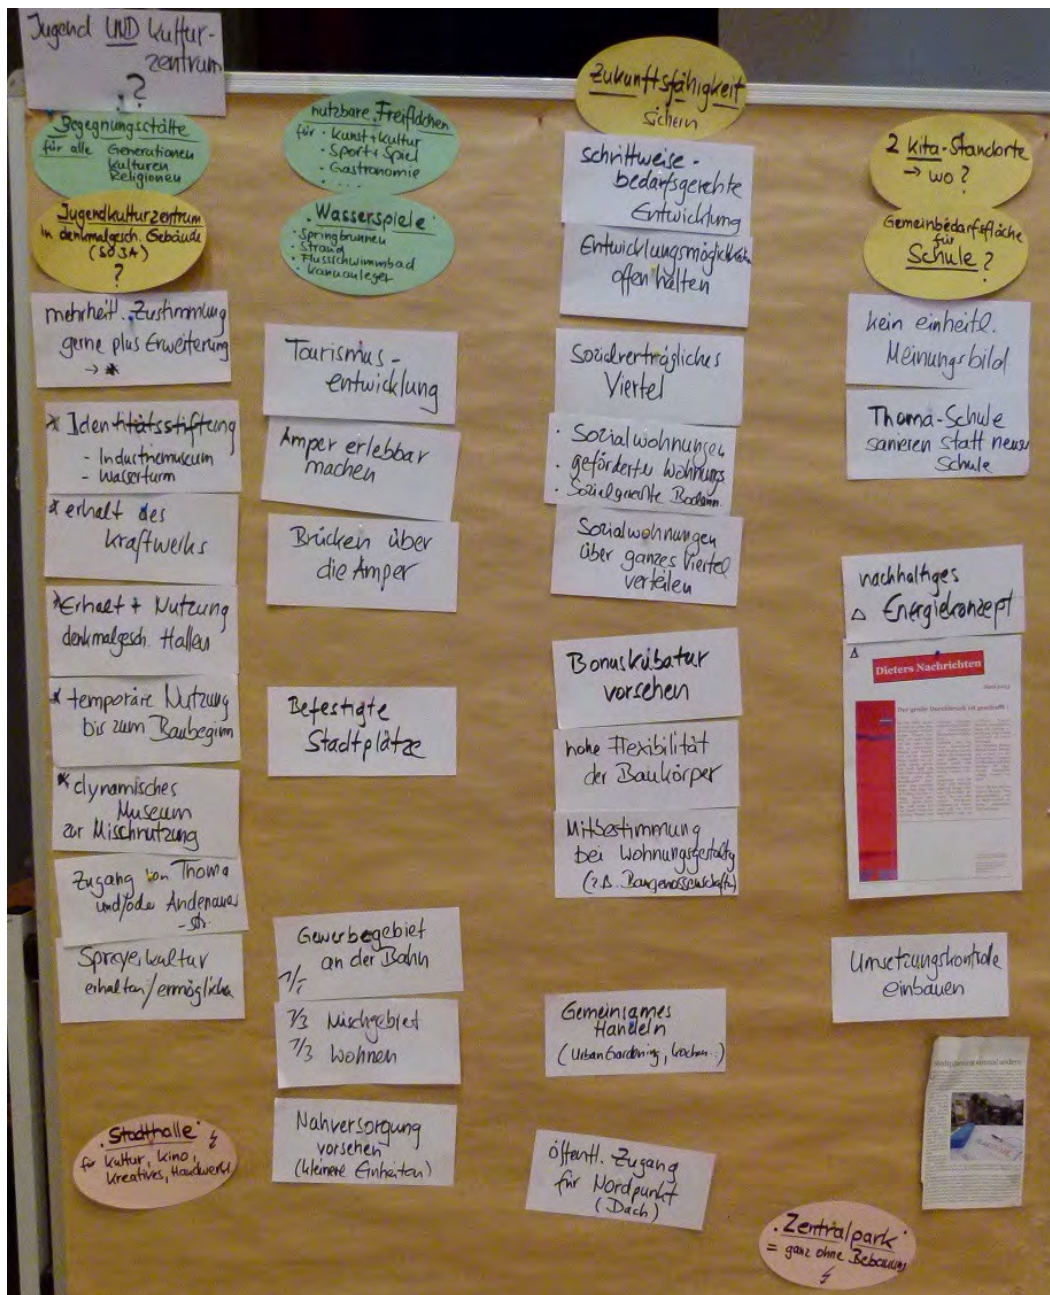 Jugend UND Kultur-
zentrum
?
Begegnungsstätte
für alle Generationen
Kulturen
Religionen
Jugendkulturzentrum
in denkmalgesch. Gebäude
(SO3A)
?
mehrheitl. Zustimmung
gerne plus Erweiterung
→ *
* Identitätsstiftung
- Industriemuseum
- Wasserturm
* erhalt des
Kraftwerks
* Erhalt + Nutzung
denkmalgesch. Hallen
* temporäre Nutzung
bis zum Baubeginn
* dynamisches
Museum
zur Mischnutzung
Zugang von Thoma
und/oder Andenauer
-str.
Sprayerkultur
erhalten/ermögliche
"Stadthalle"
für Kultur, Kino,
Kreatives, Handwerk
nutzbare Freiflächen
für · Kunst + Kultur
· Sport + Spiel
· Gastronomie
· ....
"Wasserspiele"
· Springbrunnen
· Strand
· Flussschwimmbad
· Kanuanleger
Tourismus-
entwicklung
Amper erlebbar
machen
Brücken über
die Amper
Befestigte
Stadtplätze
Gewerbegebiet
an der Bahn
1/3 Mischgebiet
1/3 Wohnen
Nahversorgung
vorsehen
(kleinere Einheiten)
Zukunftsfähigkeit
sichern
schrittweise -
bedarfsgerechte
Entwicklung
Entwicklungsmöglichkeiten
offen halten
Sozialverträgliches
Viertel
· Sozialwohnungen
· geförderter Wohnungs
· Sozialgerechte Bodenn.
Sozialwohnungen
über ganzes Viertel
verteilen
Bonuskubatur
vorsehen
hohe Flexibilität
der Baukörper
Mitbestimmung
bei Wohnungsgestaltg
(z.B. Baugenossenschaft)
Gemeinsames
Handeln
(Urban Gardening, kochen...)
öffentl. Zugang
für Nordpunkt
(Dach)
2 Kita-Standorte
→ wo?
Gemeinbedarfsfläche
für
Schule?
kein einheitl.
Meinungsbild
Thoma-Schule
sanieren statt neuer
Schule
nachhaltiges
△ Energiekonzept
△
Dieters Nachrichten
Der große Durchbruch ist geschafft !
Umsetzungskontrolle
einbauen
"Zentralpark"
= ganz ohne Bebauung